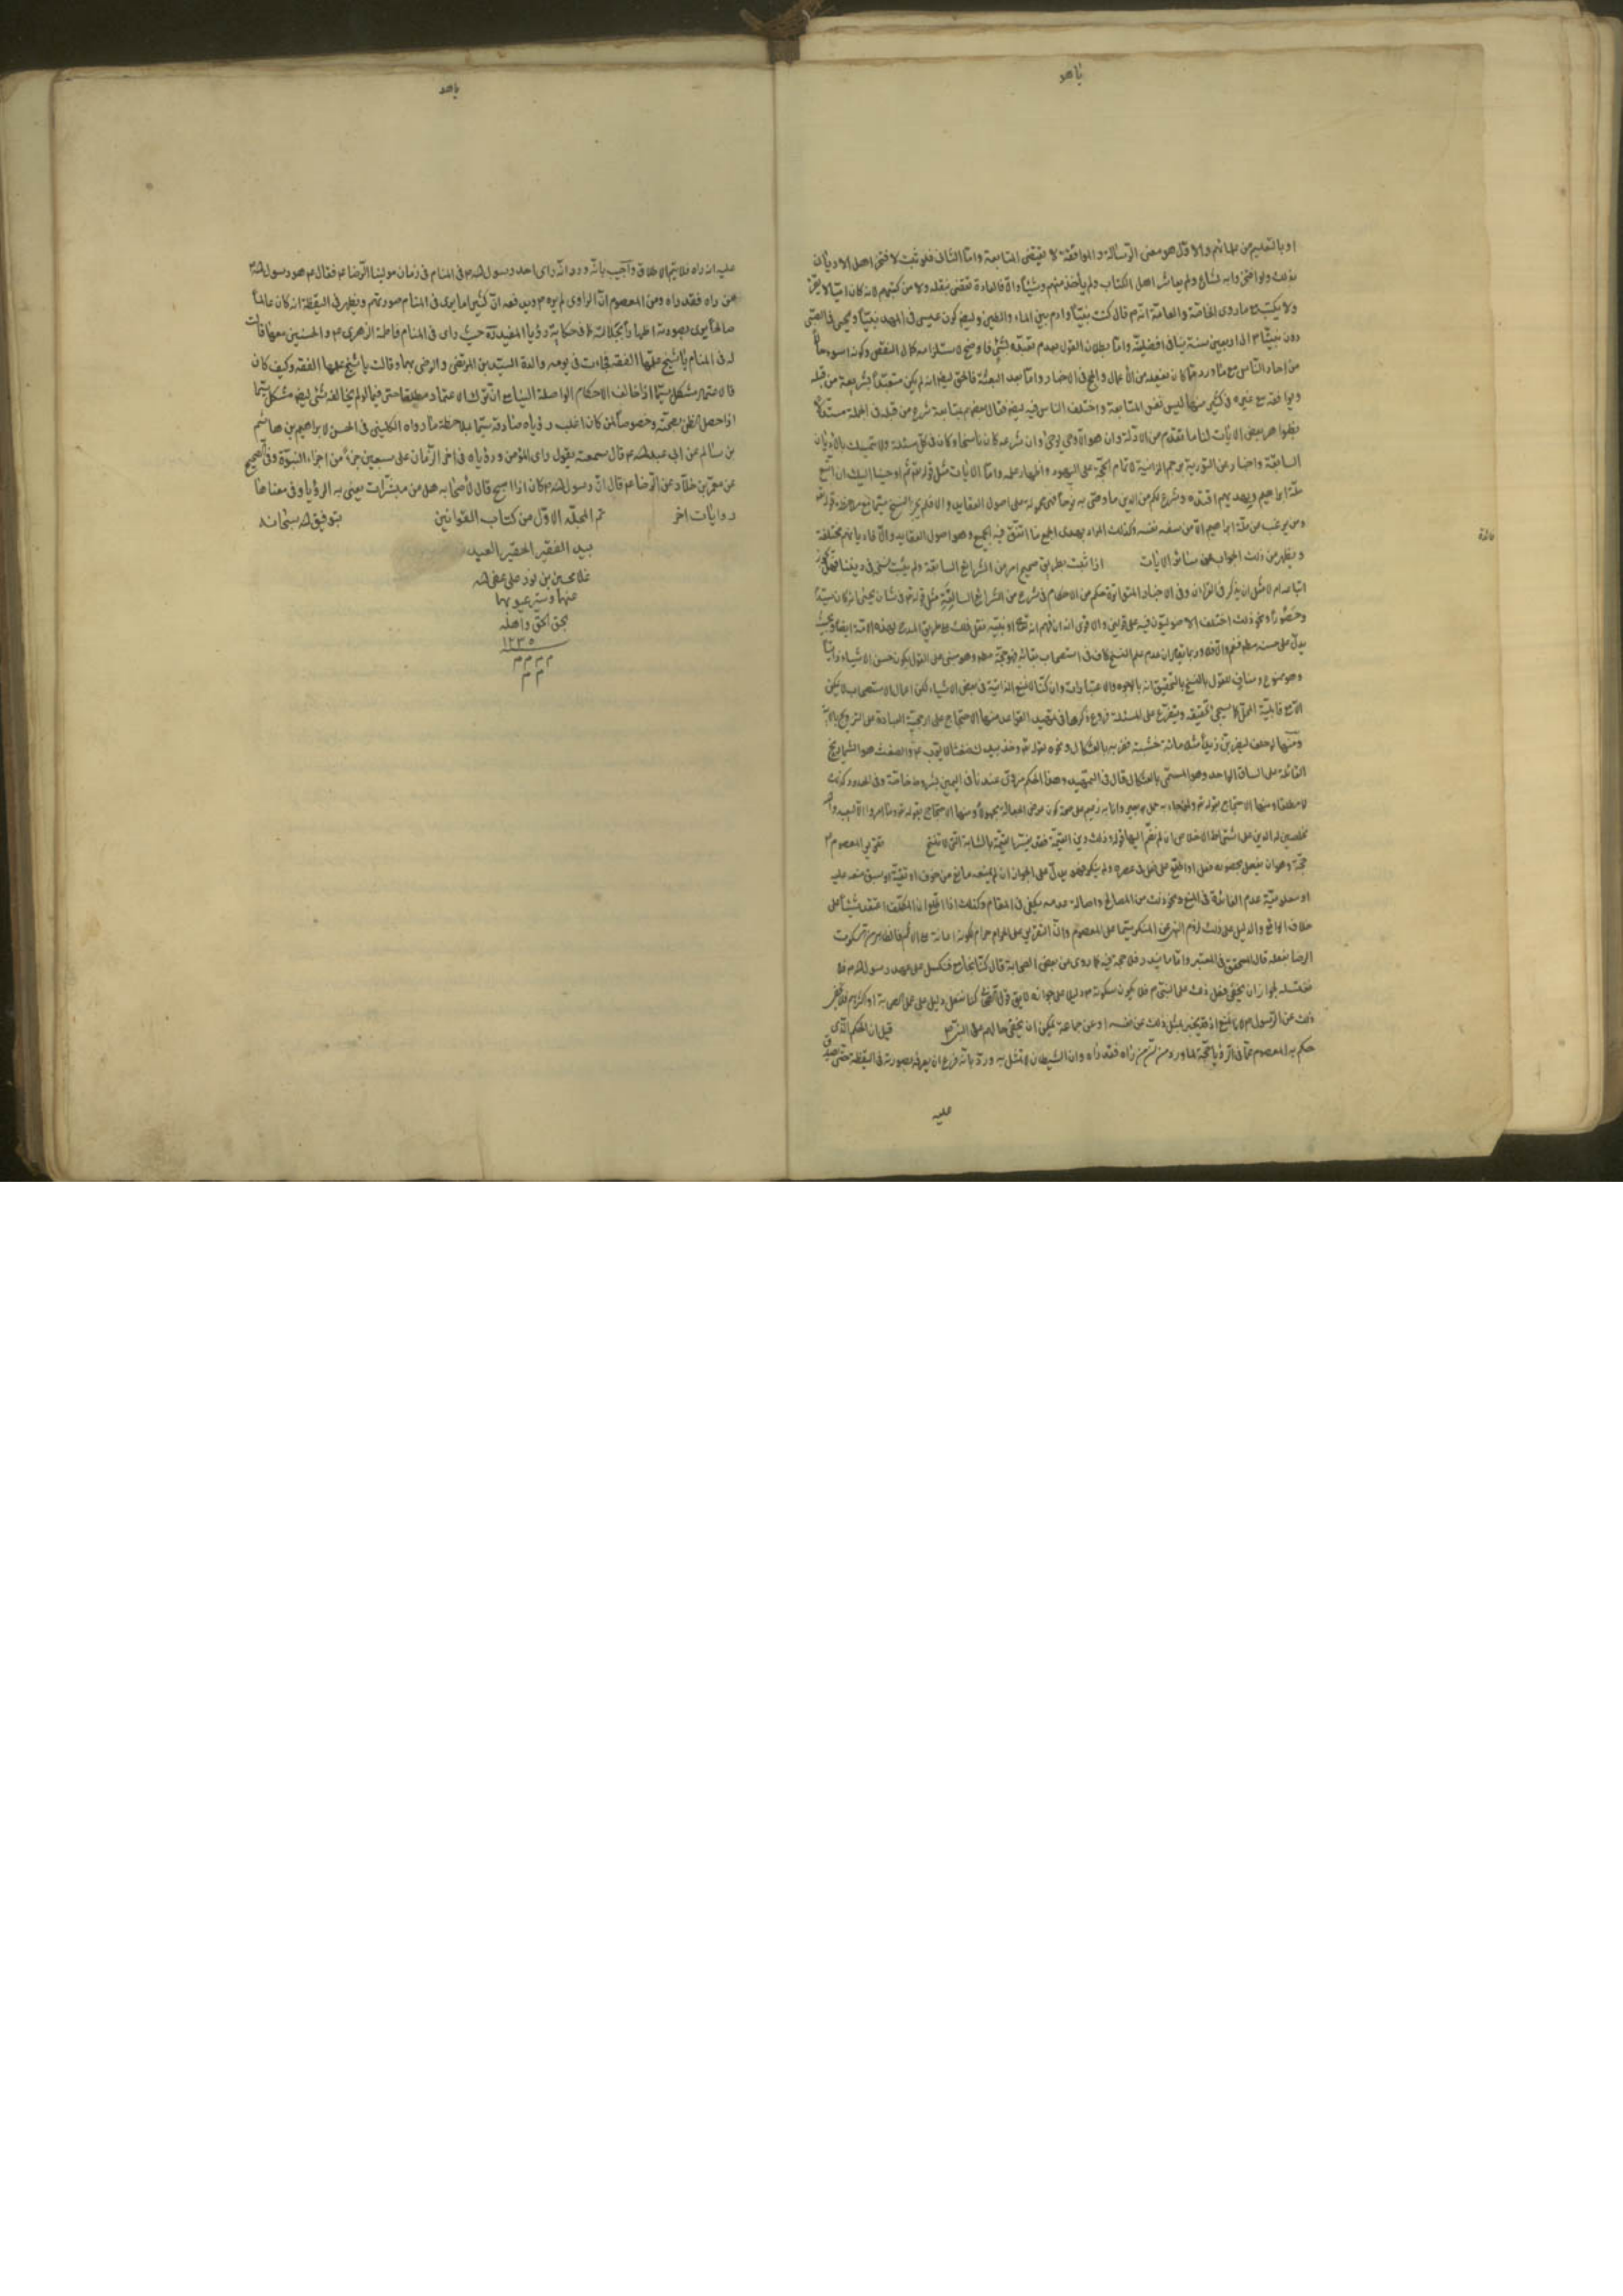 او بالتعليم من علمائهم والاول هو معنى الرسالة والموافقة لا يقتضى المتابعة واما الثانى فلو ثبت لافتخر اهل الاديان
بذلك ولو افتخروا به لشاع ولم يعاشر اهل الكتاب ولم يأخذ منهم شيئا والا فالعادة تقتضى بنقله ولا من كتبهم لانه كان اميا لا يقرء
ولا يكتب مع ما روى الخاصة والعامة انه م قال كنت نبيا وادم بين الماء والطين وايض كون عيسى فى المهد نبيا ويحيى فى الصبى
دون نبينا م الى اربعين سنة ينافى افضليته واما بطلان القول بعدم تعبده بشئ فاوضح لاستلزامه كمال النقص وكونه اسوء حالا
من احاد الناس مع ما ورد من الاعمال والحج فى الاخبار واما بعد البعثة فالحق ايض انه لم يكن متعبدا بشريعة من قبله
وموافقته مع غيره فى كثير منها ليس نفس المتابعة واختلف الناس فيه ايض فقال بعضهم بمتابعة شرع من قبله فى الجملة مستدلا
بظواهر بعض الايات لنا ما تقدم من الادلة وان هو الا وحى يوحى وان شرعه كان ناسخا وكان فى كل مسئلة ولا تمسك بالاديان
السابقة واخباره عن التورية برجم الزانية لاتمام الحجة على اليهود واظهار علمه واما الايات مثل قوله تعم ثم اوحينا اليك ان اتبع
ملة ابراهيم وبهديهم اقتده وشرع لكم من الدين ما وصى به نوحا فهى محمولة على اصول العقايد والا فلم يجز النسخ سيما مع ملاحظة قوله تعم
ومن يرغب عن ملة ابراهيم الا من سفه نفسه وكذلك المراد بهدى الجميع ما اتفق فيه الجميع وهو اصول العقايد والا فاديانهم مختلفة
ويظهر من ذلك الجواب عن سائر الايات اذا ثبت بطريق صحيح امر من الشرايع السابقة ولم يثبت نسخه فى ديننا فهل يجوز
اتباعه ام لا مثل ان يذكر فى القران وفى الاخبار المتواترة حكم من الاحكام فى شرع من الشرايع السابقة مثل قوله تعم فى شان يحيى انه كان سيدا
وحصورا ونحو ذلك اختلف الاصوليون فيه على قولين والاقوى انه ان فهم انه تعم او نبيه نقل ذلك على طريق المدح لهذه الامة ايضا وبحيث
يدل على حسنه مطلقا فنعم والا فلا وربما يقال ان عدم علم النسخ كاف فى استصحاب بقائه فهو حجة مطلقا وهو مبنى على القول بكون حسن الاشياء ذاتيا
وهو ممنوع ومناف للقول بالنسخ بل التحقيق انه بالوجوه والاعتبارات وان كنا لا نمنع الذاتية فى بعض الاشياء لكن اعمال الاستصحاب لا يمكن
الا مع قابلية المحل كما سيجئ تحقيقه ويتفرع على المسئلة فروع ذكرها فى تمهيد القواعد منها الاحتجاج على ارجحية العبادة على التزويج بالاية
ومنها لو حلف ليضربن زيدا مثلا مائة خشبة فضربه بالعثكال ونحوه لقوله تعم وخذ بيدك ضغثا لايوب ع والضغث هو الشماريخ
القائمة على الساق الواحد وهو المسمى بالعثكال قال فى التمهيد وهذا الحكم مروى عندنا فى اليمين بشروط خاصة وفى الحدود كذلك
لا مطلقا ومنها الاحتجاج بقوله تعم ولمن جاء به حمل بعير وانا به زعيم على صحة كون عوض الجعالة مجهولا ومنها الاحتجاج بقوله تعم وما امروا الا ليعبدوا الله
مخلصين له الدين على اشتراط الاخلاص ان لم نضم اليها قوله وذلك دين القيمة فقد يفسر القيمة بالثابتة التى لا تنسخ تقرير المعصوم ع
حجة وهو ان يفعل بحضوره فعل او اطلع على فعل فى عصره ولم ينكر فهو يدل على الجواز ان لم يمنعه مانع من خوف او تقية او سبق منعه عليه
او معلومية عدم الفائدة فى المنع ونحو ذلك من المصالح واصالة عدمه يكفى فى المقام وكذلك اذا اطلع ان المكلف اعتقد شيئا على
خلاف الواقع والدليل على ذلك لزوم النهى عن المنكر سيما على المعصوم وان التقرير على الحرام حرام لكونه اعانة على الاثم فالظاهر من سكوت
الرضا بفعله قال المحقق فى المعتبر واما ما يندر فلا حجة فيه كما روى عن بعض الصحابة قال كنا نجامع فنكسل على عهد رسول الله م فلا
نغتسل لجواز ان يخفى فعل ذلك على النبى م فلا يكون سكوته م دليلا على جوازه لا يق قول الصحابى كنا نفعل دليل على عمل الصحابة او اكثرهم فلا يخفى
ذلك عن الرسول م لانا نمنع اذ قد يخبر بمثل ذلك عن نفسه او عن جماعة يمكن ان يخفى حالهم على النبى م قيل ان الحكم الذى
حكم به المعصوم عم فى الرؤيا حجة لما ورد من ان من راه فقد راه وان الشيطان لا يتمثل به ورد بانه فرع ان يعرفه بصورته فى اليقظة حتى يصدق
عليه
عليه انه راه فلا يتم الاطلاق واجيب بانه ورد انه راى احد رسول الله م فى المنام فى زمان مولينا الرضا ع فقال ع هو رسول الله م
من راه فقد راه ومن المعصوم ان الراوى لم يره م ويدفعه ان كثيرا ما يرى فى المنام صورتهم ويظهر فى اليقظة انه كان عالما
صالحا يرى بصورته اظهارا لجلالته كما فى حكاية رؤيا المفيد ره حيث راى فى المنام فاطمة الزهرى ع والحسنين معها قالت
له فى المنام يا شيخ علمها الفقه فجاءت فى يومه والدة السيدين المرتضى والرضى بهما وقالت يا شيخ علمها الفقه وكيف كان
فالاعتماد مشكل سيما اذا خالف الاحكام الواصلة الينا مع ان ترك الاعتماد مطلقا حتى فيما لو لم يخالفه شئ ايض مشكل سيما
اذا حصل الظن بصحته وخصوصا لمن كان اغلب رؤياه صادقة سيما بملاحظة ما رواه الكلينى فى الحسن لابراهيم بن هاشم
بن سالم عن ابى عبد الله ع قال سمعته يقول راى المؤمن ورؤياه فى اخر الزمان على سبعين جزء من اجزاء النبوة وفى الصحيح
عن معمر بن خلاد عن الرضا ع قال ان رسول الله م كان اذا اصبح قال لاصحابه هل من مبشرات يعنى به الرؤيا وفى معناها
روايات اخر تم المجلد الاول من كتاب القوانين بتوفيق الله سبحانه
بيد الفقير الحقير العبد
غلامحسين بن نور على عفى الله
عنهما وستر عيوبهما
بحق الحق واهله
١٢٣٥
م م م م
م م